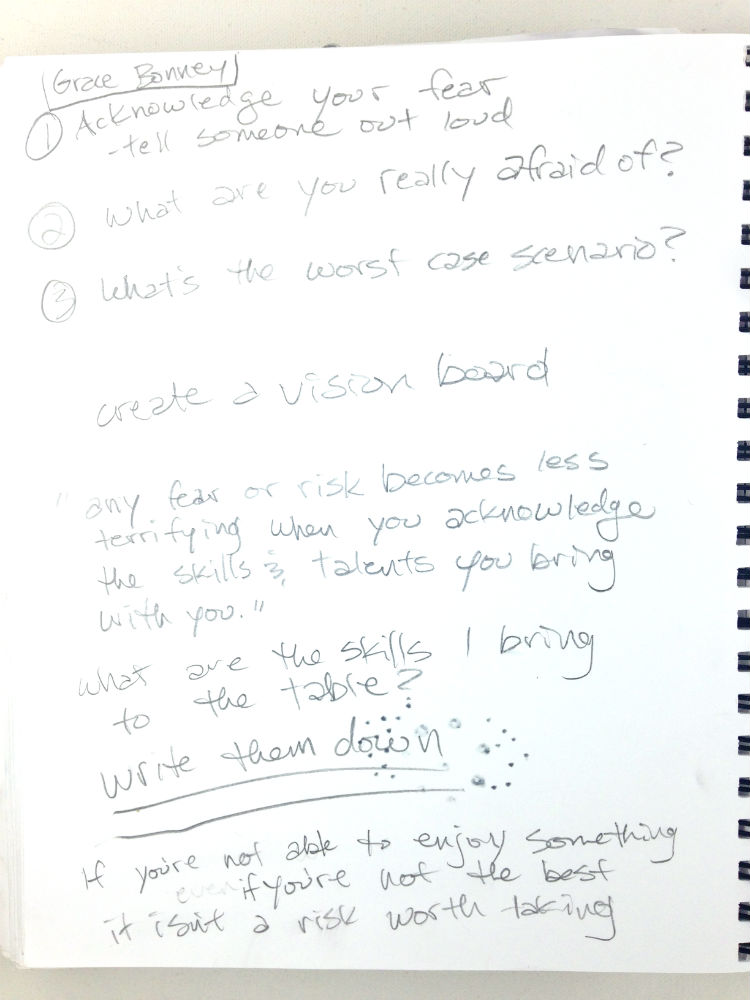 Grace Bonney
① Acknowledge your fear
-tell someone out loud
② What are you really afraid of?
③ What's the worst case scenario?
create a vision board
"any fear or risk becomes less
terrifying when you acknowledge
the skills & talents you bring
with you."
what are the skills I bring
to the table?
write them down
If you're not able to enjoy something
even if you're not the best
it isn't a risk worth taking